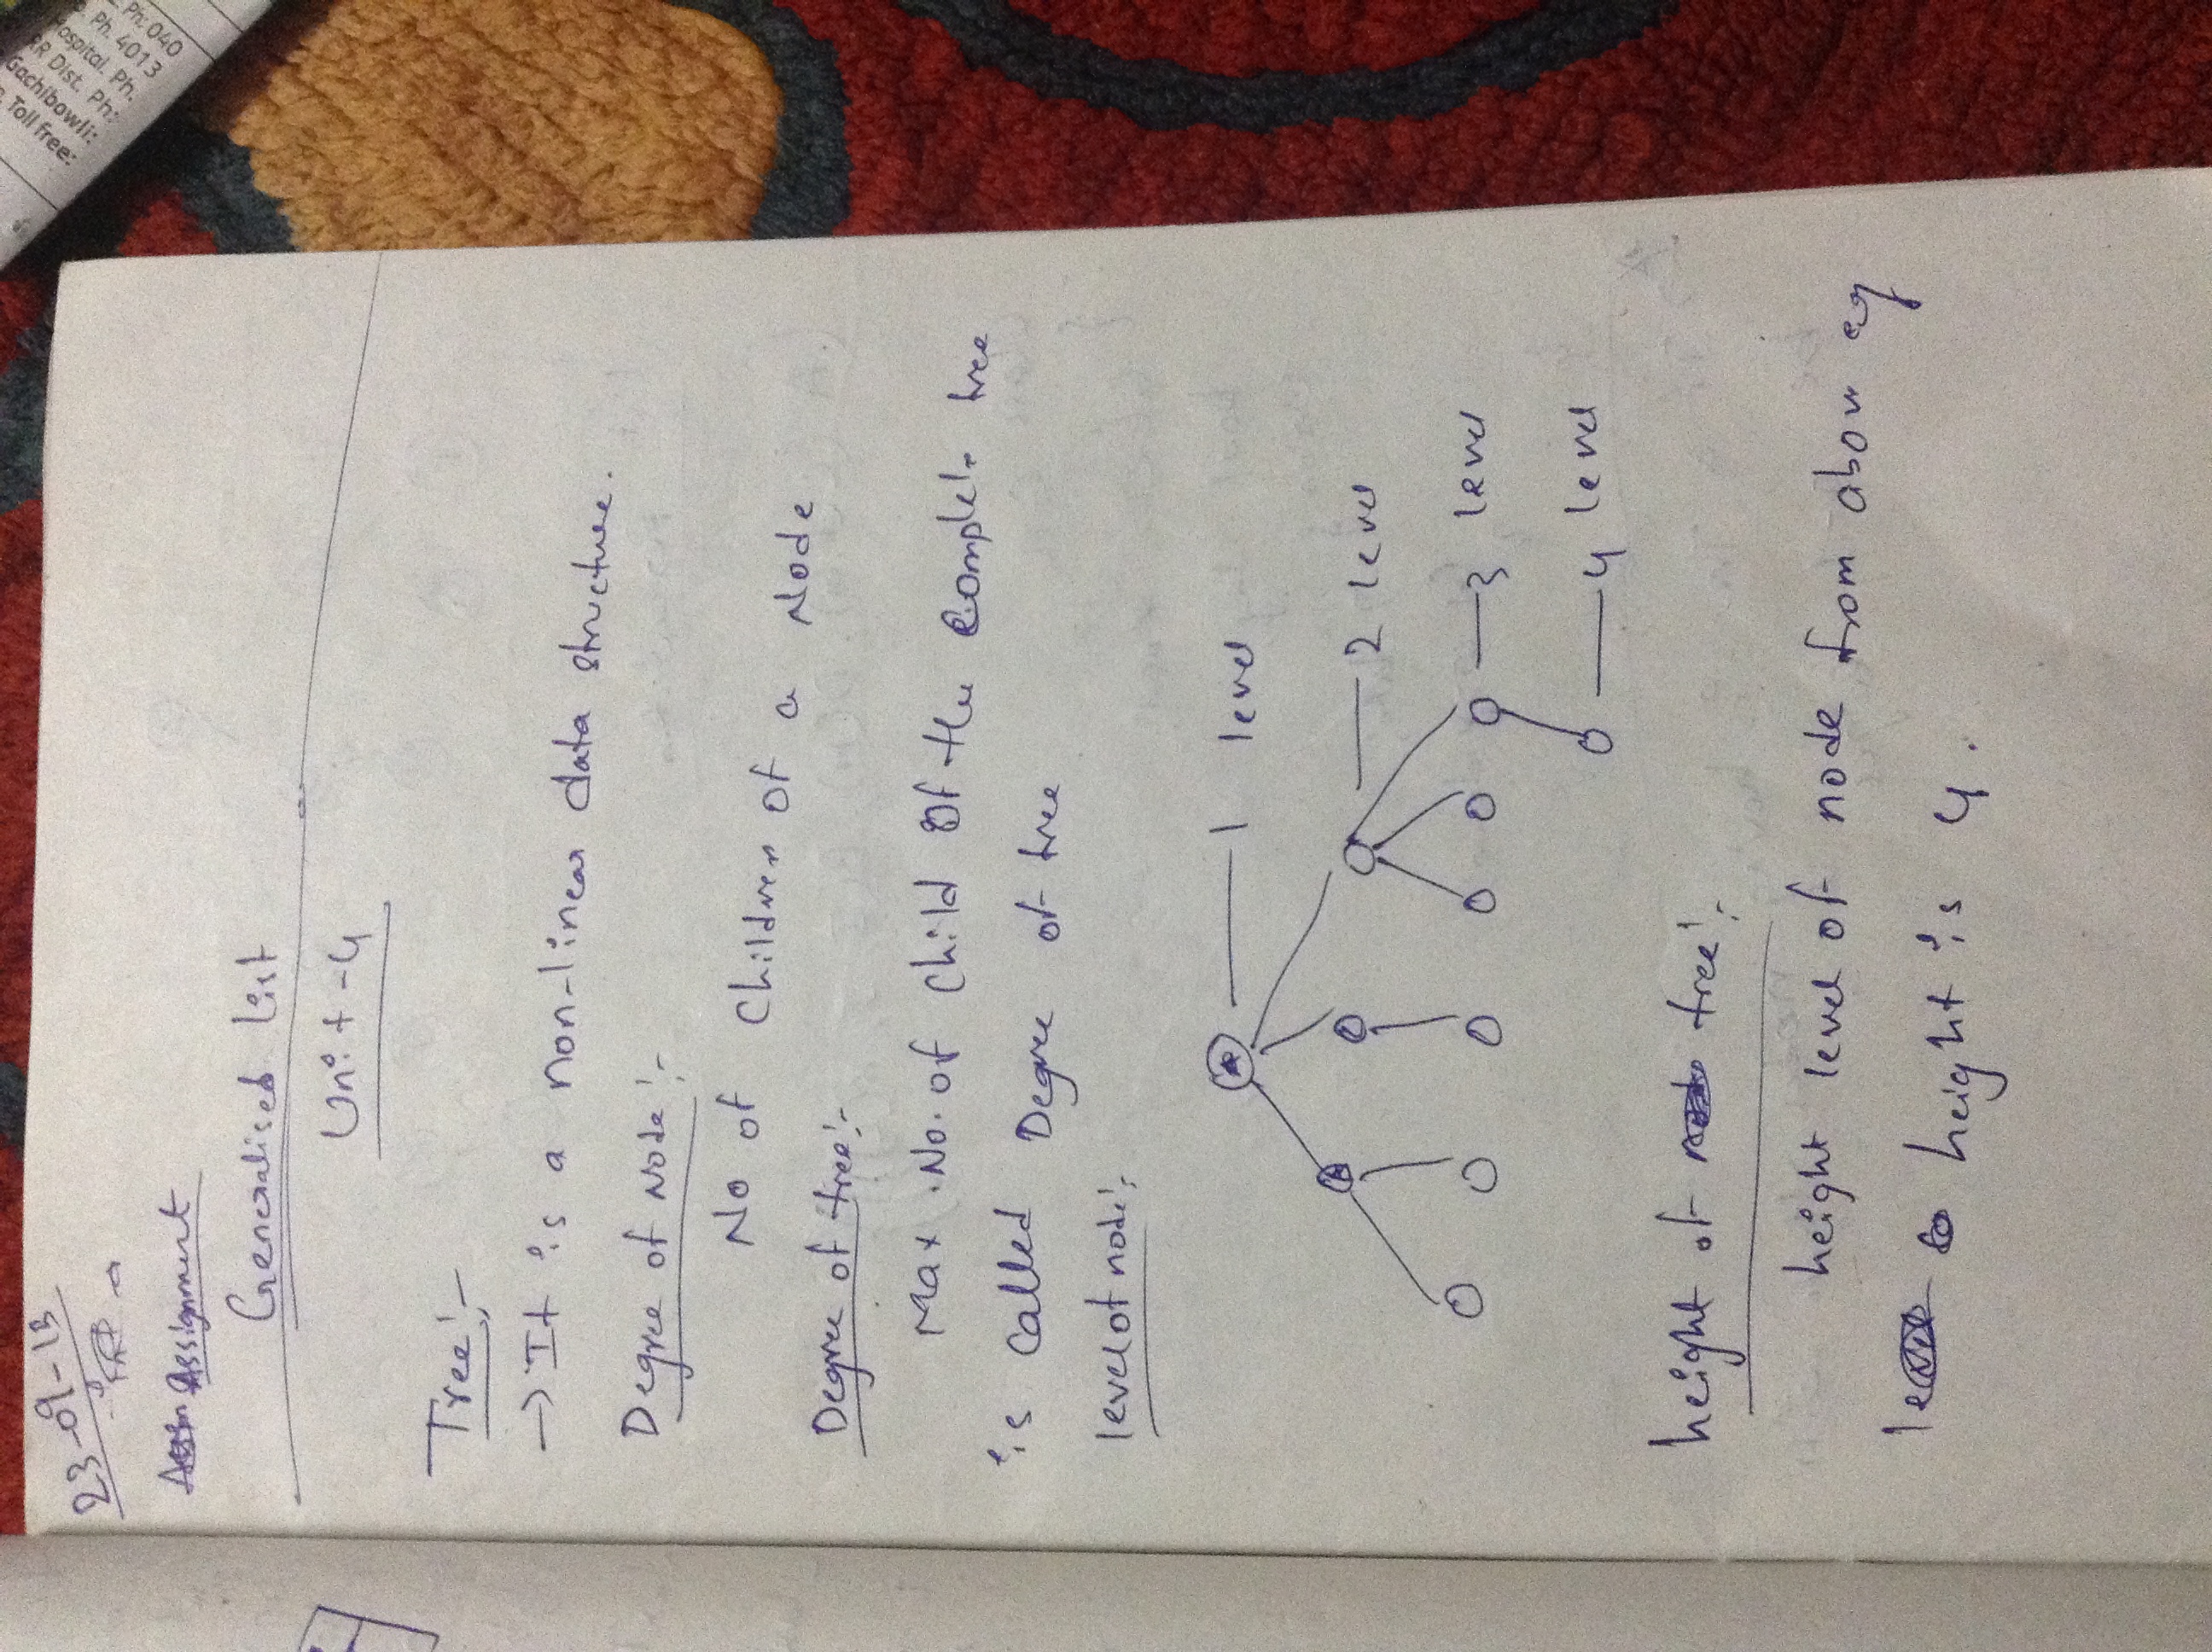 23-09-13
Assignment
Generalised list
Unit-4
Tree:-
→ It is a non-linear data structure.
Degree of Node:-
No of Children of a Node
Degree of tree:-
Max. No. of child of the complete tree
is called Degree of tree
level of node:-
A
1 level
2 level
3 level
4 level
height of tree:-
height level of node from above eg
so height is 4.
Ph. 040
Ph. 4013
Hospital, Ph.
RR Dist. Ph:
Gachibowli:
Toll free: